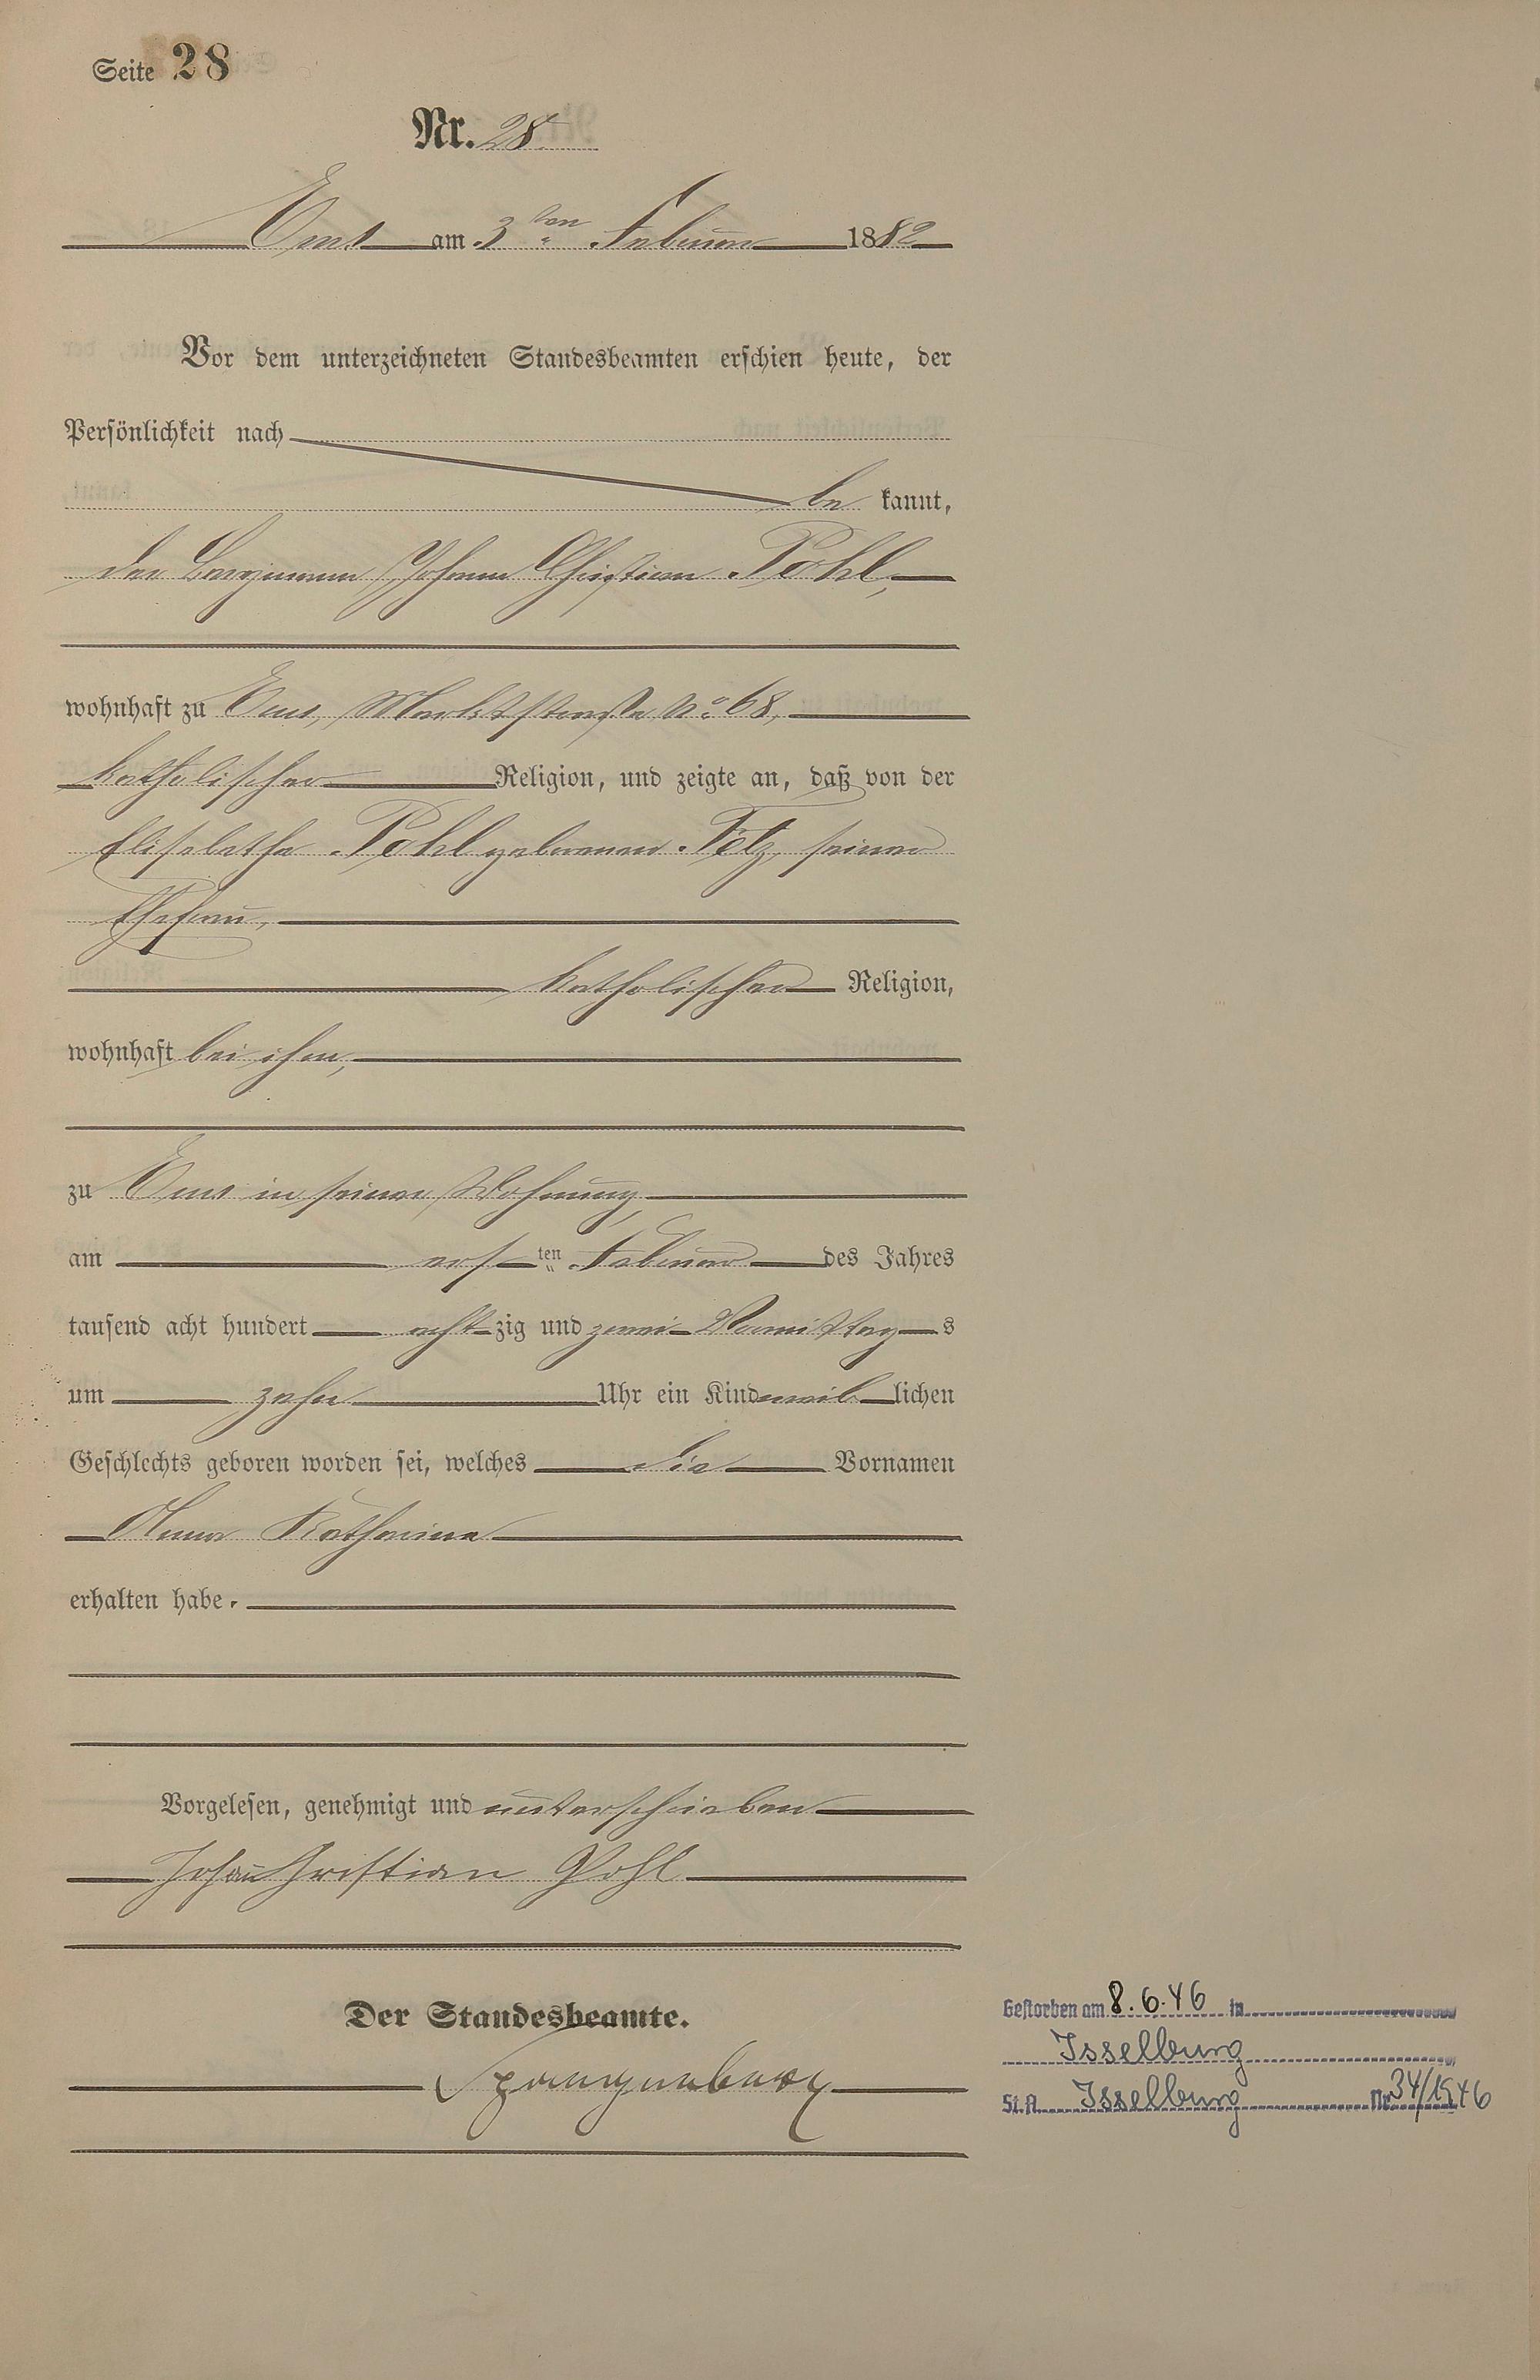 Seite 28
Nr. 28.
Ems am 3ten Februar 1882
Vor dem unterzeichneten Standesbeamten erschien heute, der
Persönlichkeit nach
be kannt,
der Bergmann Johann Christian Pohl,
wohnhaft zu Ems, Marktstraße No 68,
katholischer Religion, und zeigte an, daß von der
Elisabetha Pohl geborenen Fölz, seiner
Ehefrau,
katholischer Religion,
wohnhaft bei ihm,
zu Ems in seiner Wohnung
am ersten Februar des Jahres
tausend acht hundert achtzig und zwei Vormittags
um zehn Uhr ein Kind weiblichen
Geschlechts geboren worden sei, welches die Vornamen
Anna Katharina
erhalten habe.
Vorgelesen, genehmigt und unterschrieben
Johann Christian Pohl
Der Standesbeamte.
Spangenberg
Gestorben am 8.6.46 in
Isselburg
St.A. Isselburg Nr. 34/1946